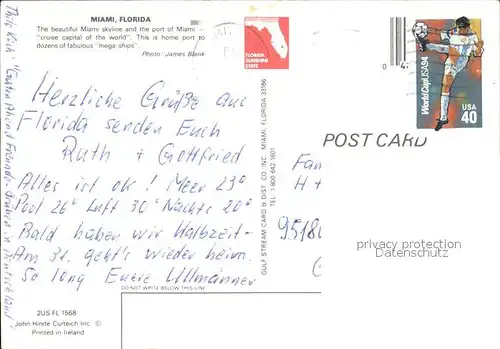 MIAMI, FLORIDA
The beautiful Miami skyline and the port of Miami -
"cruise capital of the world". This is home port to
dozens of fabulous "mega-ships".
Photo: James Blank
Herzliche Grüße aus
Florida senden Euch
Ruth + Gottfried
Alles ist ok! Meer 23°
Pool 26° Luft 30° Nachts 20°
Bald haben wir Halbzeit-
Am 31. geht's wieder heim.
So long Euere Ullmänner
DO NOT WRITE BELOW THIS LINE
2US FL 1568
John Hinde Curteich Inc. ©
Printed in Ireland
FLORIDA
SUNSHINE
STATE
GULF STREAM CARD & DIST. CO. INC., MIAMI, FLORIDA 33156
TEL. 1-800-642-1601
World Cup USA 94
USA
40
POST CARD
Fam
H +
9518
privacy protection
Datenschutz